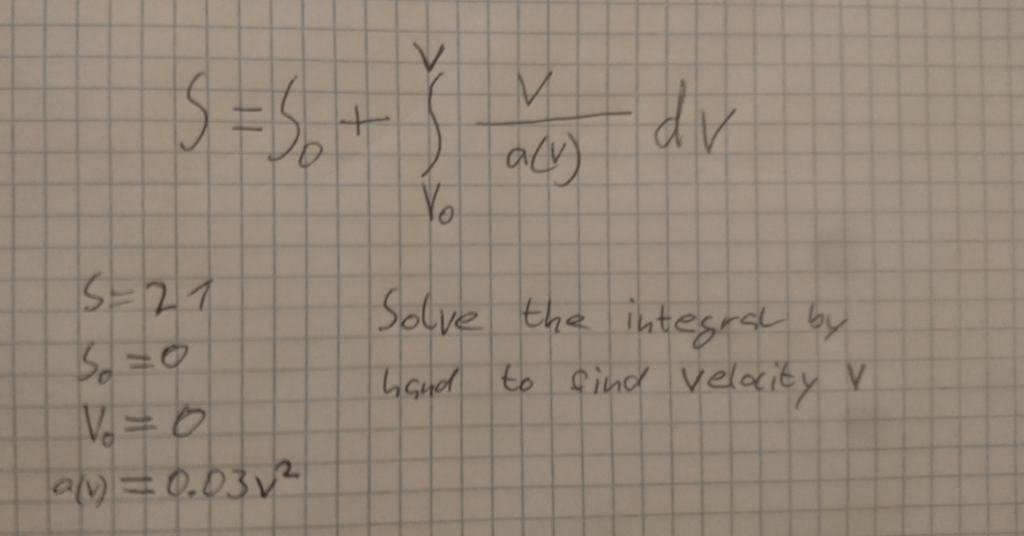 S = S₀ + ∫_{V₀}^{V} \frac{V}{a(V)} dV
S = 21
S₀ = 0
V₀ = 0
a(v) = 0.03v²
Solve the integral by
hand to find velocity V